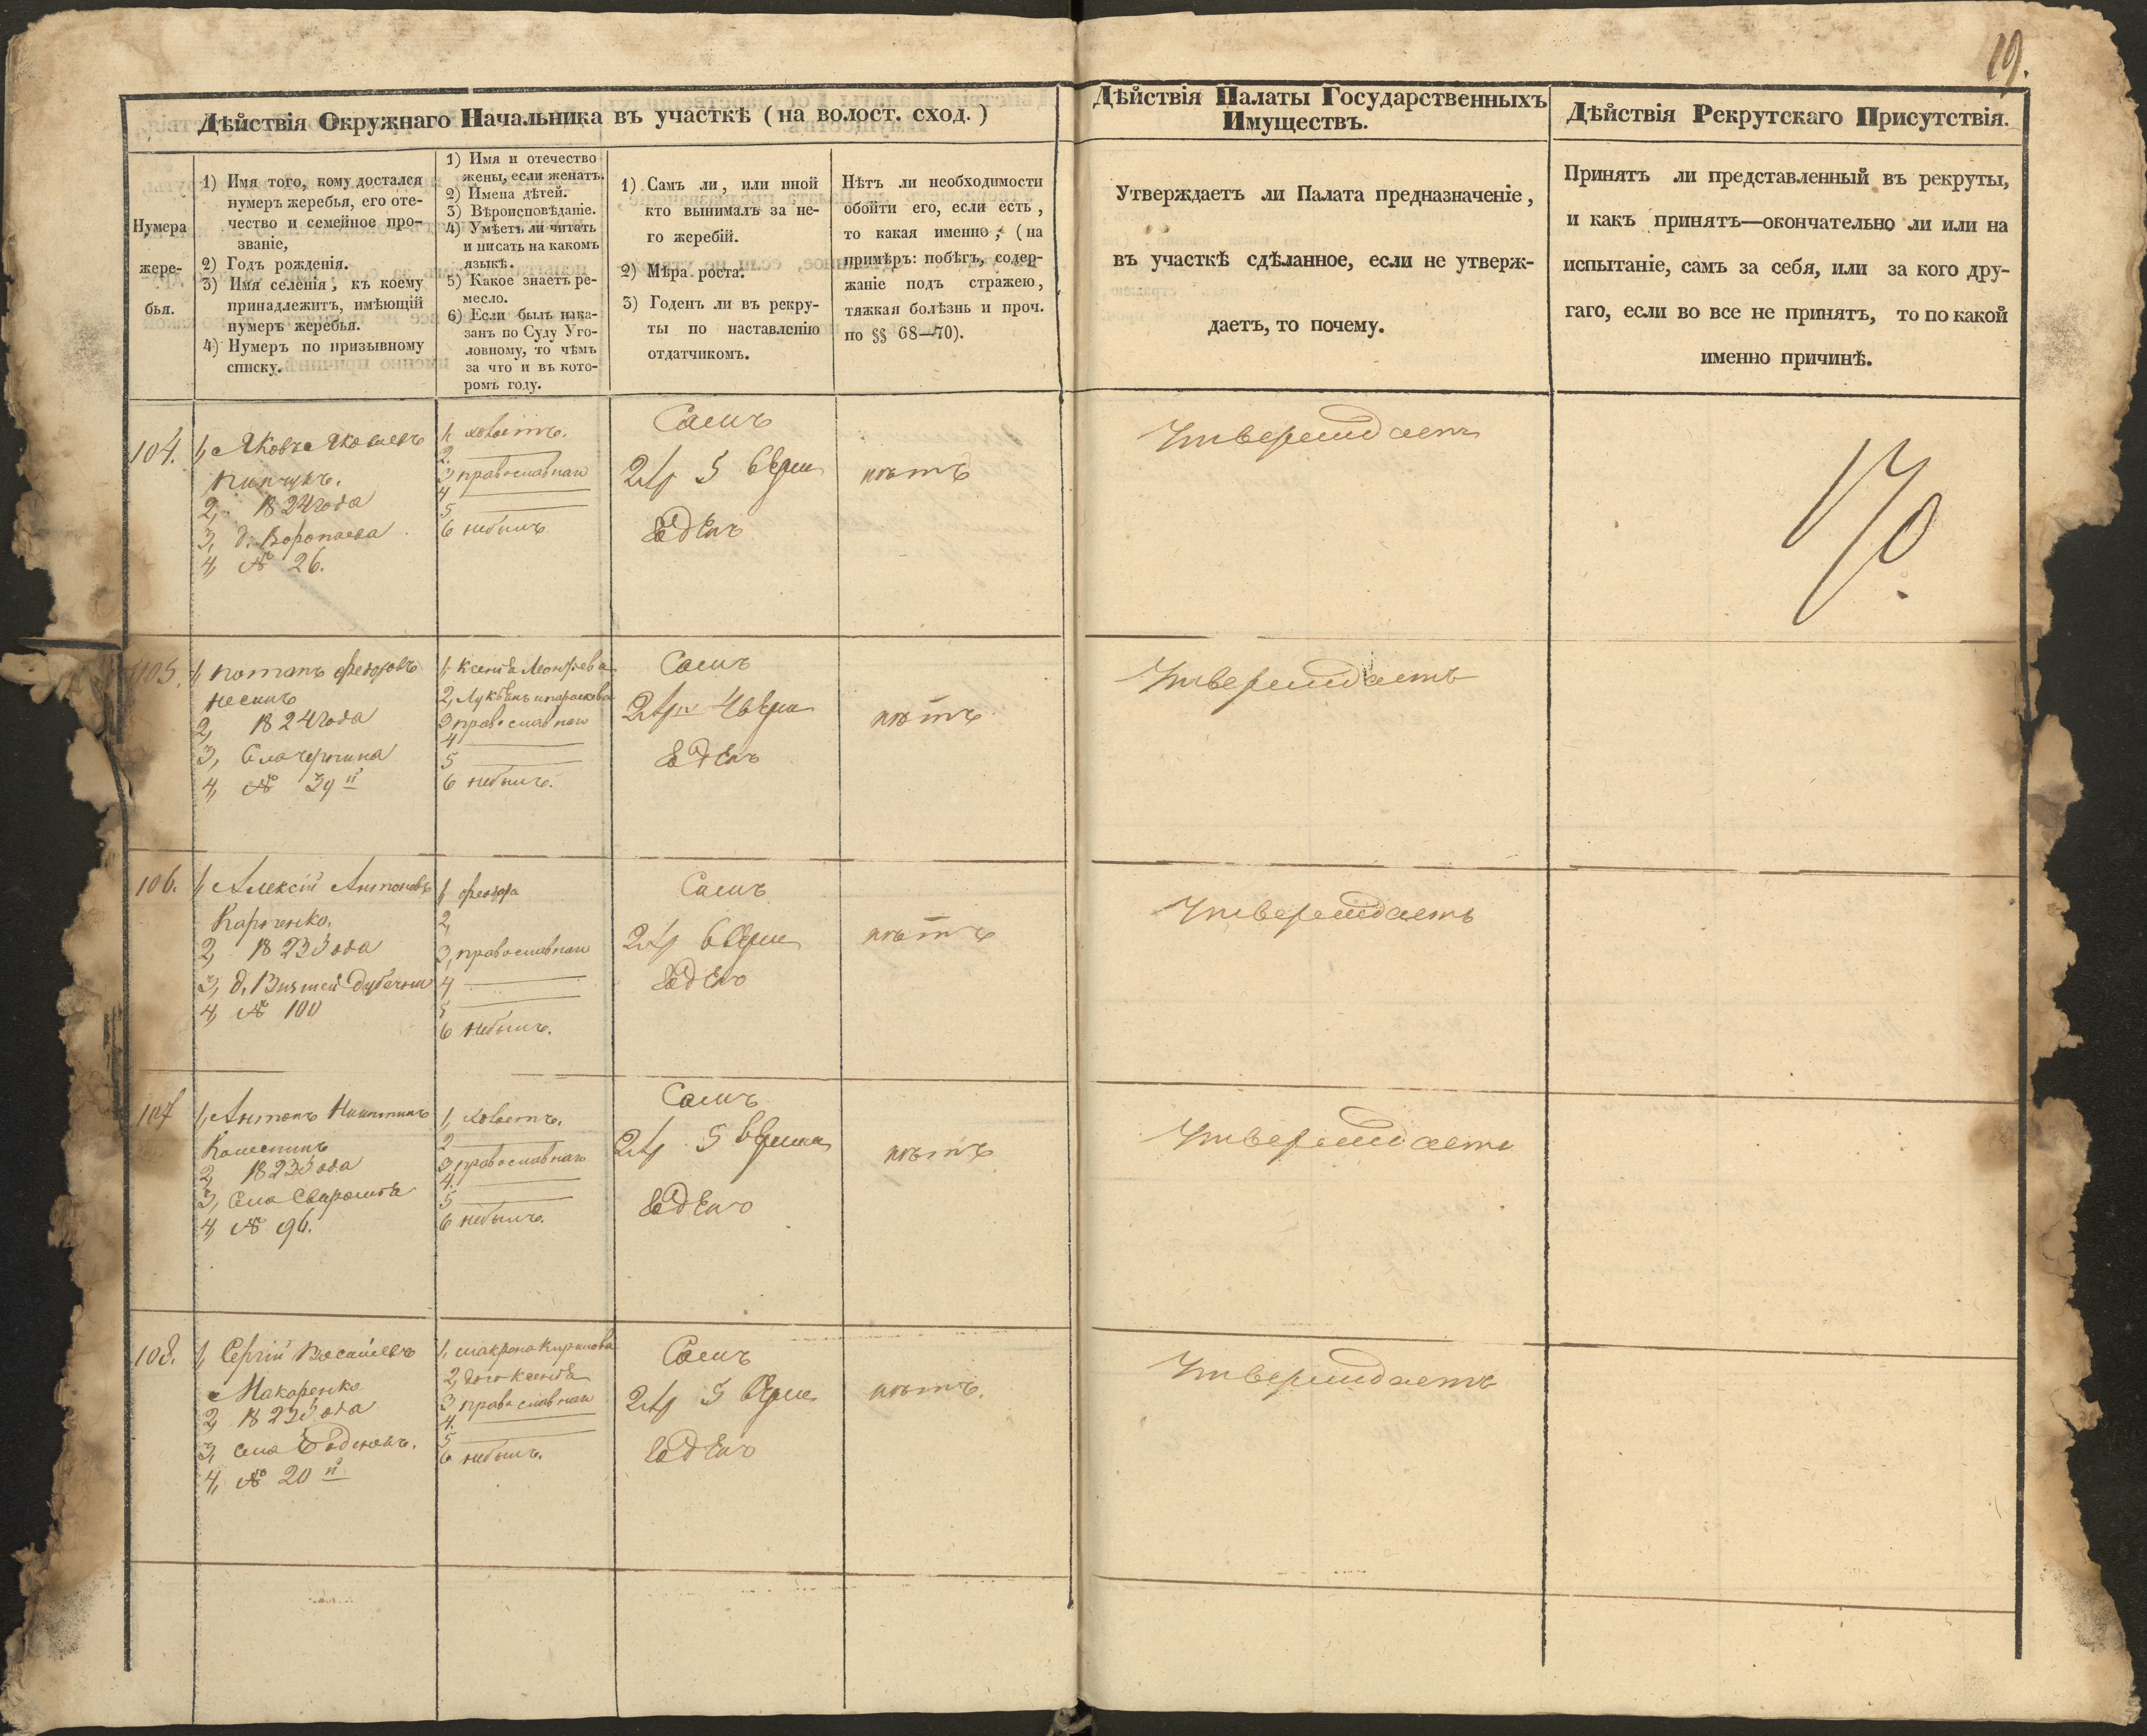 19.
Дѣйствія Окружнаго Начальника въ участкѣ (на волост. сход.)
Дѣйствія Палаты Государственныхъ
Имуществъ.
Дѣйствія Рекрутскаго Присутствія.
Нумера
жере-
бья.
1) Имя того, кому достался
нумеръ жеребья, его оте-
чество и семейное про-
званіе,
2) Годъ рожденія.
3) Имя селенія, къ коему
принадлежитъ, имѣющій
нумеръ жеребья.
4) Нумеръ по призывному
списку.
1) Имя и отечество
жены, если женатъ.
2) Имена дѣтей.
3) Вѣроисповѣданіе.
4) Умѣетъ ли читать
и писать на какомъ
языкѣ.
5) Какое знаетъ ре-
месло.
6) Если былъ нака-
занъ по Суду Уго-
ловному, то чѣмъ
за что и въ кото-
ромъ году.
1) Самъ ли, или иной
кто вынималъ за не-
го жеребій.
2) Мѣра роста.
3) Годенъ ли въ рекру-
ты по наставленію
отдатчикомъ.
Нѣтъ ли необходимости
обойти его, если есть,
то какая именно; (на
примѣръ: побѣгъ, содер-
жаніе подъ стражею,
тяжкая болѣзнь и проч.
по §§ 68—70).
Утверждаетъ ли Палата предназначеніе,
въ участкѣ сдѣланное, если не утверж-
даетъ, то почему.
Принятъ ли представленный въ рекруты,
и какъ принятъ—окончательно ли или на
испытаніе, самъ за себя, или за кого дру-
гаго, если во все не принятъ, то по какой
именно причинѣ.
104.
1, Яковъ Яковлевъ
Пинчукъ.
2, 1824 года
3, д. Воропаева
4, № 26.
1, холостъ.
2.
3 православная
4
5
6 небылъ
Самъ
2 ар 5 верш
годенъ
нѣтъ
Утверждаетъ
105.
1, Потапъ Федоровъ
2, 1824 года
3, Села
4, № 39й
1, Ксенія
2,
3 православная
4
5
6 небылъ.
Самъ
2 ар 4 верш
годенъ
нѣтъ
Утверждаетъ
106.
1, Алексій Антоновъ
Карпенко.
2, 1823 года
3, д. Вышей Дубечни
4, № 100
1, Федора
2,
3, православная
4
5
6 небылъ.
Самъ
2 ар 6 верш
годенъ
нѣтъ
Утверждаетъ
107
1, Антонъ Никитинъ
2, 1823 года
3, Села
4, № 96.
1, холостъ.
2
3 православная
4.
5
6 небылъ.
Самъ
2 ар 5 верш
годенъ
нѣтъ
Утверждаетъ
108.
1, Сергій Васильевъ
Макаренко
2, 1823 года
3, села
4, № 20й
1, Макрена Кирилова
2, дочь Ксенія
3 православная
4.
5
6 небылъ.
Самъ
2 ар 5 верш
годенъ
нѣтъ.
Утверждаетъ